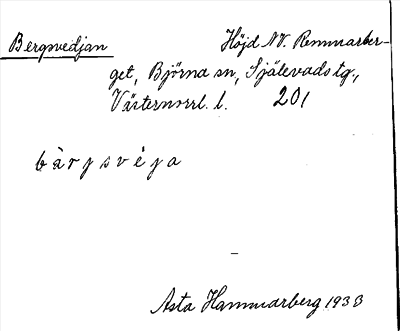 Bergsvedjan Höjd NV. Remmarber-
get, Björna sn, Själevads tg.,
Västernorrl. l. 201
bàrjsvéja
Asta Hammarberg 1933